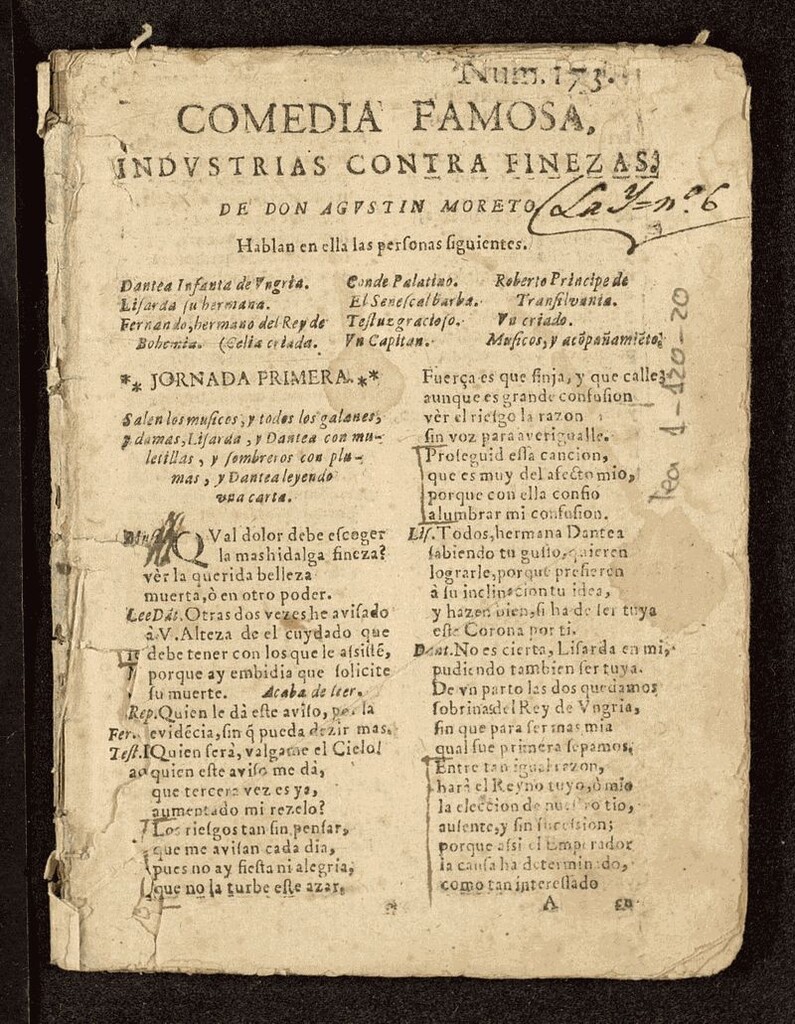 Num. 173.
COMEDIA FAMOSA,
INDVSTRIAS CONTRA FINEZAS.
DE DON AGVSTIN MORETO
La Y= nº. 6
Hablan en ella las personas siguientes.
Dantea Infanta de Vngria.
Lisarda su hermana.
Fernando, hermano del Rey de
Bohemia. (Celia criada.
Conde Palatino.
El Senescal barba.
Testuz gracioso.
Vn Capitan.
Roberto Principe de
Transilvania.
Vn criado.
Musicos, y acõpañamiẽto.
tea 1-120-20
*** JORNADA PRIMERA. ***
Salen los musicos, y todos los galanes,
y damas, Lisarda, y Dantea con mu-
letillas, y sombreros con plu-
mas, y Dantea leyendo
vna carta.
Mus. QVal dolor debe escoger
la mas hidalga fineza?
vèr la querida belleza
muerta, ò en otro poder.
Lee Dãt. Otras dos vezes he avisado
à V. Alteza de el cuydado que
debe tener con los que le assistẽ,
porque ay embidia que solicite
su muerte. Acaba de leer.
Rep. Quien le dà este aviso, por la
Fer. evidẽcia, sin q̃ pueda dezir mas.
Test. Quien serà, valgame el Cielo!
quien este aviso me dà,
que tercera vez es ya,
aumentado mi rezelo?
Los riesgos tan sin pensar,
que me avisan cada dia,
pues no ay fiesta ni alegria,
que no la turbe este azar.
Fuerça es que finja, y que calle;
aunque es grande confusion
vèr el riesgo la razon
sin voz para averigualle.
Proseguid essa cancion,
que es muy del afecto mio,
porque con ella confio
alumbrar mi confusion.
Lis. Todos, hermana Dantea
sabiendo tu gusto, quieren
lograrle, porque prefieren
à su inclinacion tu idea,
y hazen bien, si ha de ser tuya
este Corona por ti.
Dant. No es cierta, Lisarda en mi,
pudiendo tambien ser tuya.
De vn parto las dos quedamos
sobrinas del Rey de Vngria,
sin que para ser mas mia
qual fue primera sepamos.
Entre tan igual razon,
harà el Reyno tuyo, ò mio
la eleccion de nuestro tio,
ausente, y sin sucession;
porque assi el Emperador
la causa ha determinado,
como tan interessado
A